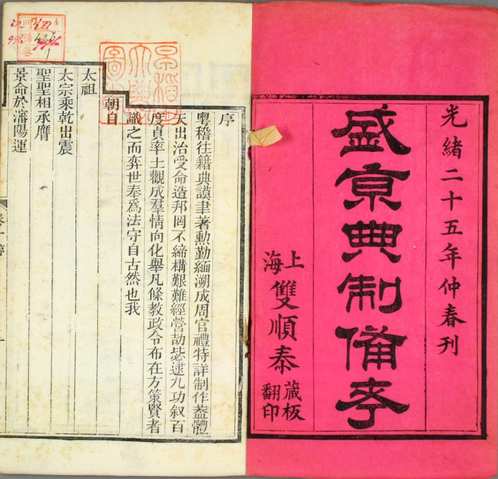 光緒二十五年仲春刊
盛京典制備考
上海雙順泰藏板翻印
序
粵稽往籍典謨聿著勳勤緬溯成周官禮特詳制作蓋體
天出治受命造邦罔不締構艱難經營劼毖逮九功敘百
度貞率土觀成羣情向化舉凡條教政令布在方策賢者
識之而弈世奉為法守自古然也我
朝自
太祖
太宗乘乾出震
聖聖相承膺
景命於瀋陽運